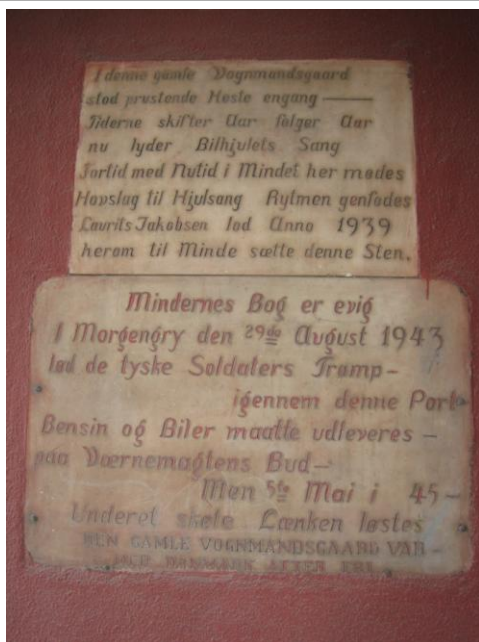 I denne gamle Vognmandsgaard
stod prustende Heste engang —
Tiderne skifter Aar følger Aar
nu lyder Bilhjulets Sang
Fortid med Nutid i Mindet her mødes
Hovslag til Hjulsang Rytmen genfødes
Laurits Jakobsen lod Anno 1939
herom til Minde sætte denne Sten.
Mindernes Bog er evig
I Morgengry den 29de August 1943
lød de tyske Soldaters Tramp –
igennem denne Port
Bensin og Biler maatte udleveres –
paa Værnemagtens Bud –
Men 5te Mai i 45 –
Underet skete Lænken løstes
DEN GAMLE VOGNMANDSGAARD VAR –
MED DANMARK ATTER FRI